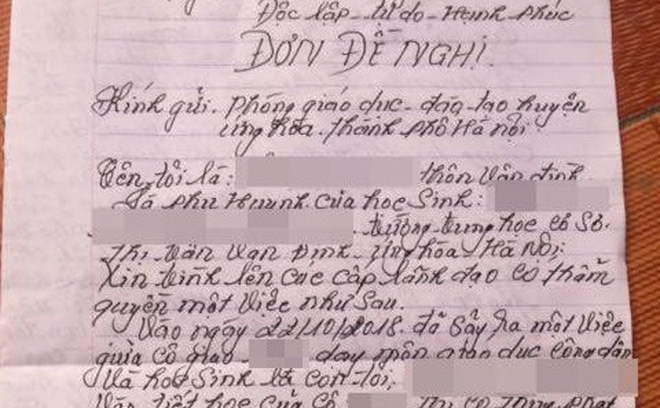 Độc lập - tự do - Hạnh phúc
ĐƠN ĐỀ NGHỊ.
Kính gửi. Phòng giáo dục - đào tạo huyện
ứng hòa. thành phố Hà nội
Tên tôi là: thôn Vân đình
Là phụ Huynh của học Sinh:
trường trung học cơ Sở.
Thị Trấn Vân Đình. ứng hòa - Hà Nội;
Xin trình lên các cấp lãnh đạo có thẩm
quyền một việc như sau.
Vào ngày 22/10/2018. đã Sẩy ra một việc
giữa cô giáo dạy môn giáo dục công dân
Và học Sinh là con tôi;
Vào tiết học của cô thì cô Thúy phạt